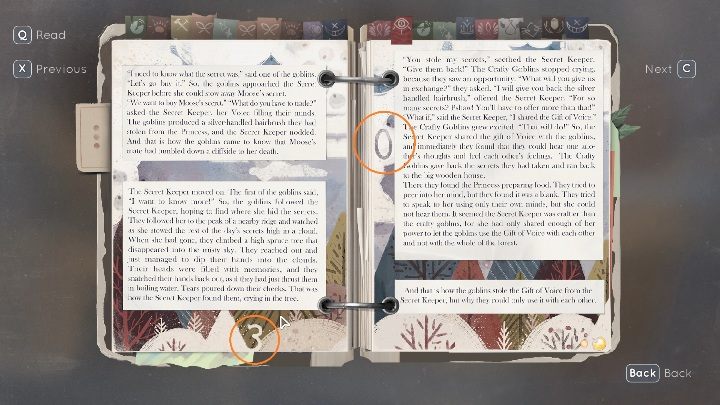 Q Read
X Previous
Next C
"I need to know what the secret was," said one of the goblins.
"Let's go buy it." So, the goblins approached the Secret
Keeper before she could stow away Moose's secret.
"We want to buy Moose's secret." "What do you have to trade?"
asked the Secret Keeper, her Voice filling their minds.
The goblins produced a silver-handled hairbrush they had
stolen from the Princess, and the Secret Keeper nodded.
And that is how the goblins came to know that Moose's
mate had tumbled down a cliffside to her death.
The Secret Keeper moved on. The first of the goblins said,
"I want to know more!" So, the goblins followed the
Secret Keeper, hoping to find where she hid the secrets.
They followed her to the peak of a nearby ridge and watched
as she stowed the rest of the day's secrets high in a cloud.
When she had gone, they climbed a high spruce tree that
disappeared into the misty sky. They reached out and
just managed to dip their hands into the clouds.
Their heads were filled with memories, and they
snatched their hands back out, as if they had just thrust them
in boiling water. Tears poured down their cheeks. That was
how the Secret Keeper found them, crying in the tree.
3
"You stole my secrets," seethed the Secret Keeper.
"Give them back!" The Crafty Goblins stopped crying,
because they saw an opportunity. "What will you give us
in exchange?" they asked. "I will give you back the silver
handled hairbrush," offered the Secret Keeper. "For so
many secrets? Pshaw! You'll have to offer more than that!"
"What if," said the Secret Keeper, "I shared the Gift of Voice."
The Crafty Goblins grew excited. "That will do!" So, the
Secret Keeper shared the gift of Voice with the goblins,
and immediately they found that they could hear one ano-
ther's thoughts and feel each other's feelings. The Crafty
Goblins gave back the secrets they had taken and ran back
to the big wooden house.
There they found the Princess preparing food. They tried to
peer into her mind, but they found it was a blank. They tried
to speak to her using only their own minds, but she could
not hear them. It seemed the Secret Keeper was craftier than
the crafty goblins, for she had only shared enough of her
power to let the goblins use the Gift of Voice with each other
and not with the whole of the forest.
0
And that is how the goblins stole the Gift of Voice from the
Secret Keeper, but why they could only use it with each other.
Back Back